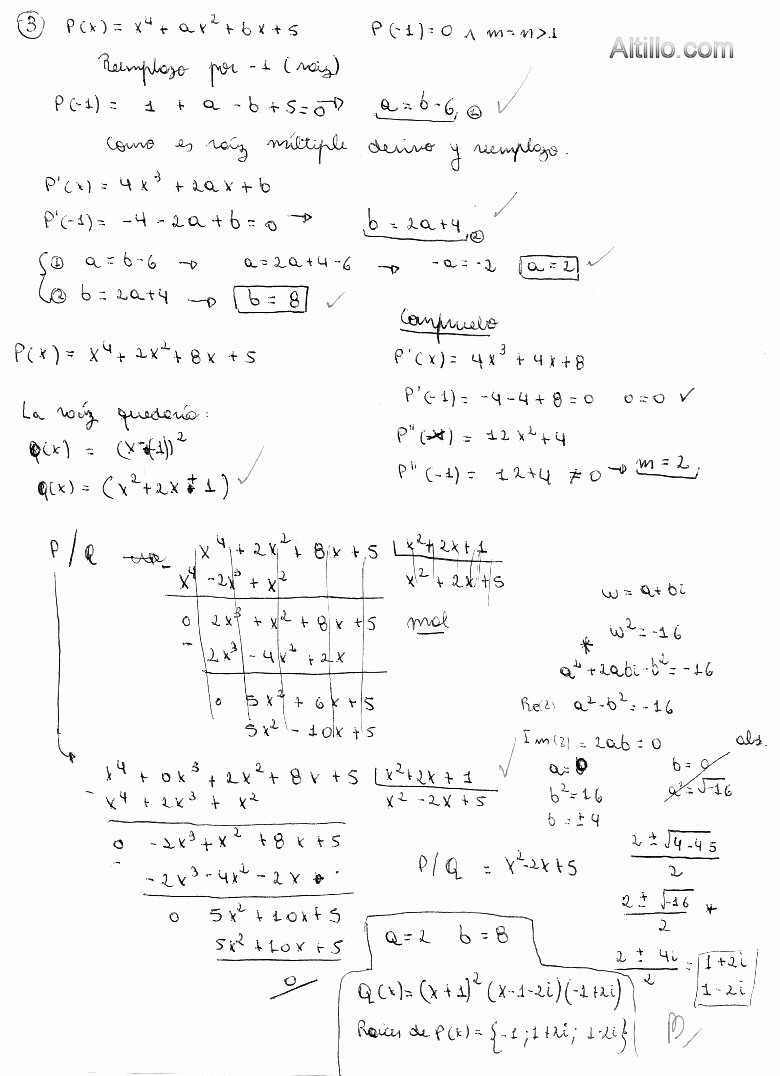 ③ P(x) = x⁴ + ax² + bx + 5 P(-1) = 0 ∧ m = n > 1
Altillo.com
Reemplazo por -1 (raíz)
P(-1) = 1 + a - b + 5 = 0 → a = b - 6 ①
Como es raíz múltiple derivo y reemplazo.
P'(x) = 4x³ + 2ax + b
P'(-1) = -4 - 2a + b = 0 → b = 2a + 4 ②
① a = b - 6 → a = 2a + 4 - 6 → -a = -2 a = 2
② b = 2a + 4 → b = 8
Compruebo
P(x) = x⁴ + 2x² + 8x + 5
P'(x) = 4x³ + 4x + 8
P'(-1) = -4 - 4 + 8 = 0 0 = 0 ✓
P''(x) = 12x² + 4
P''(-1) = 12 + 4 ≠ 0 → m = 2
La raíz quedaría:
Q(x) = (x - (-1))²
Q(x) = (x² + 2x + 1)
P/Q
x⁴ + 2x² + 8x + 5 | x² + 2x + 1
x⁴ - 2x³ + x² x² + 2x + 5
0 2x³ + x² + 8x + 5 mal
2x³ - 4x² + 2x
0 5x² + 6x + 5
5x² - 10x + 5
w = a + bi
* w² = -16
a² + 2abi - b² = -16
Re(z) a² - b² = -16
Im(z) = 2ab = 0
a = 0 b = 0 abs.
b² = 16 a² = √-16
b = ± 4
x⁴ + 0x³ + 2x² + 8x + 5 | x² + 2x + 1
x⁴ + 2x³ + x² x² - 2x + 5
0 - 2x³ + x² + 8x + 5
- 2x³ - 4x² - 2x
0 5x² + 10x + 5
5x² + 10x + 5
0
P/Q = x² - 2x + 5
2 ± √4 - 4·5
2
2 ± √-16 *
2
2 ± 4i = 1 + 2i
2 1 - 2i
a = 2 b = 8
Q(x) = (x + 1)² (x - 1 - 2i)(-1 + 2i)
Raíces de P(x) = {-1; 1 + 2i; 1 - 2i}